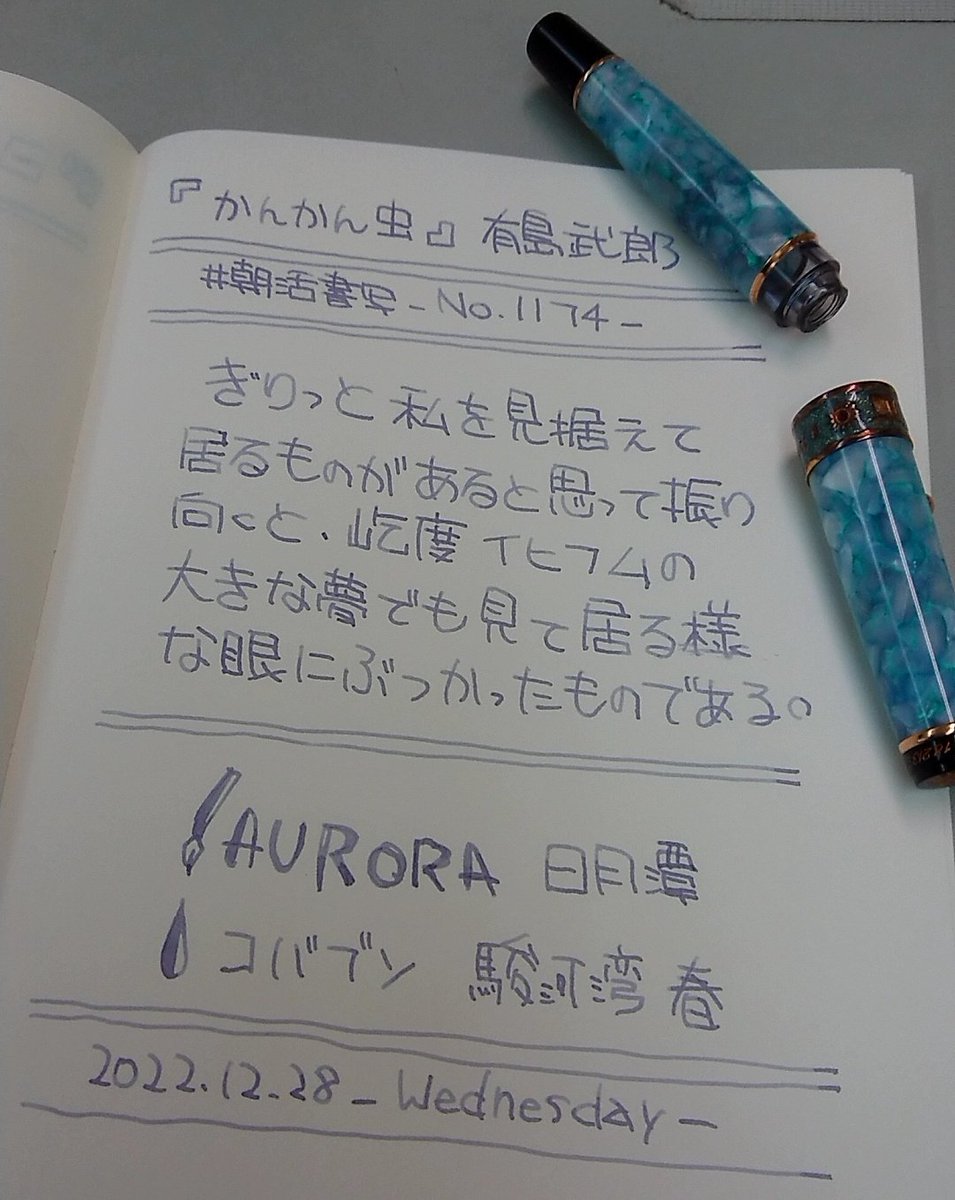 『かんかん虫』有島武郎
#朝活書写-No.1174-
ぎりっと私を見据えて
居るものがあると思って振り
向くと、屹度イヒフムの
大きな夢でも見て居る様
な眼にぶつかったものである。
AURORA 日月潭
コバブン 駿河湾 春
2022.12.28-Wednesday-